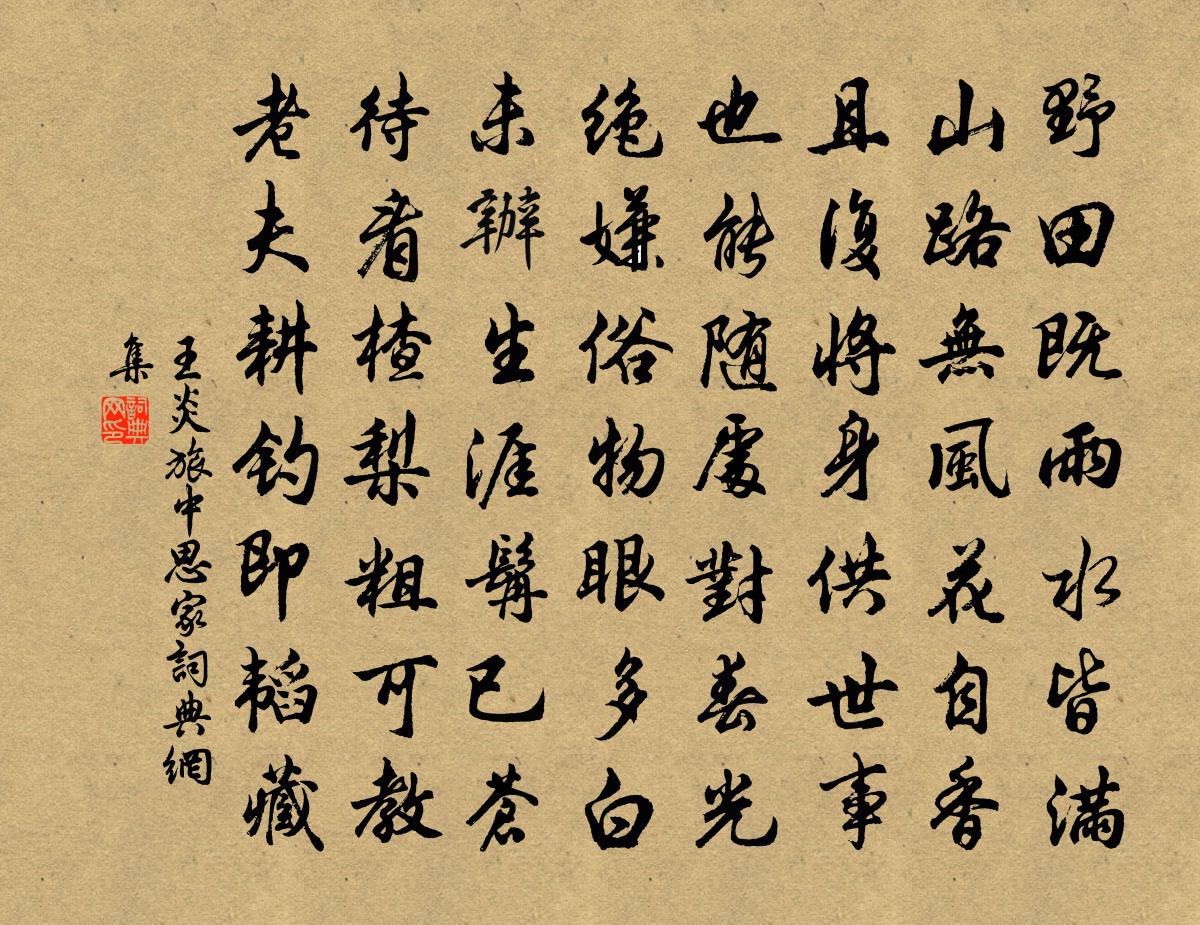 野田既雨水皆滿
山路無風花自香
且復將身供世事
也能随處對春光
绝嫌俗物眼多白
未辦生涯鬢已蒼
待看楂梨粗可教
老夫耕钓即韬藏
王炎旅中思家詞典網
集
詞典网印